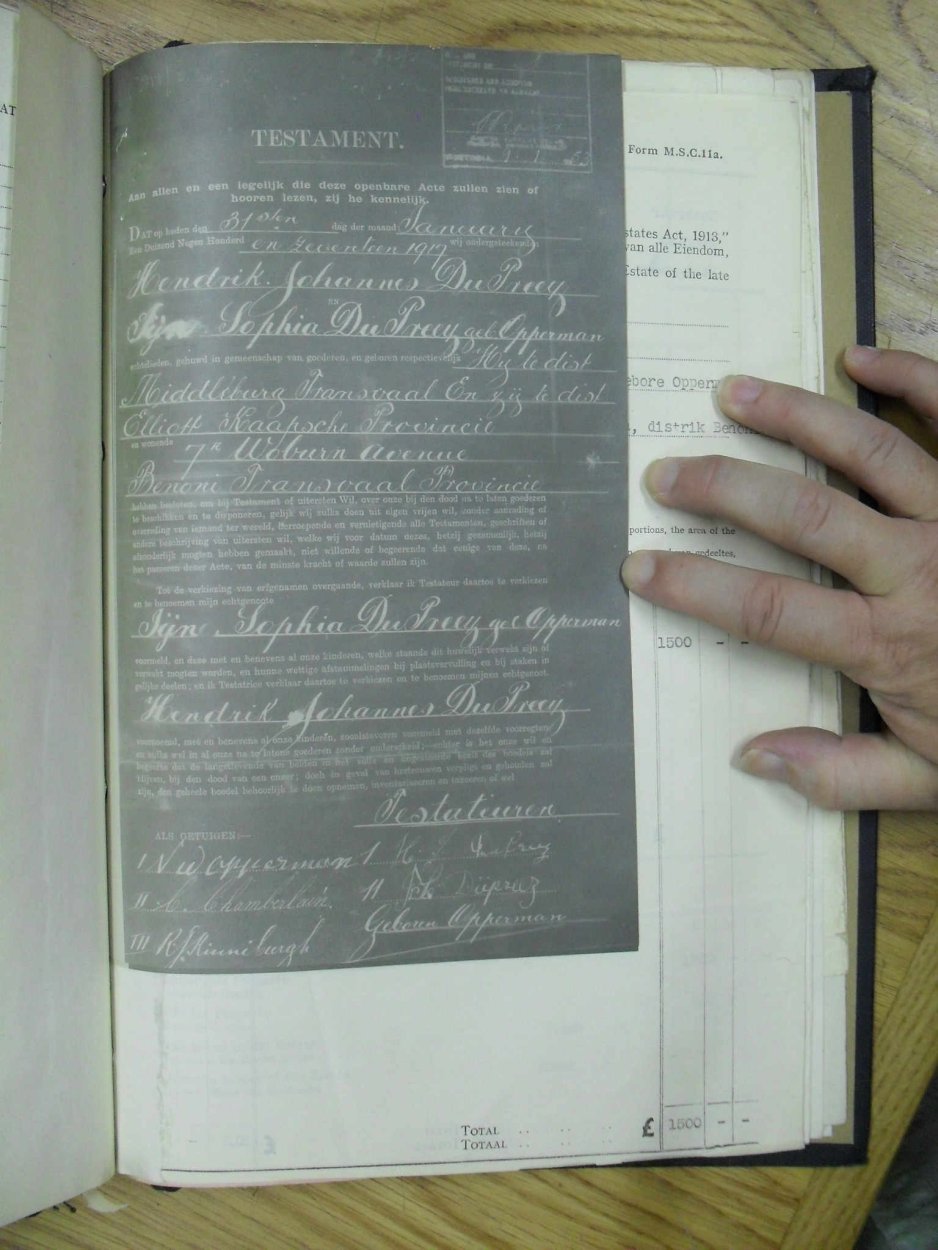 AT
TESTAMENT.
Aan allen en een iegelijk die deze openbare Acte zullen zien of
hooren lezen, zij he kennelijk.
DAT op heden den 31sten dag der maand Januarie
Een Duizend Negen Honderd en Zeventien 1917 wij ondergeteekenden
Hendrik Johannes Du Preez
EN
Sophia Du Preez geb Opperman
echtelieden, gehuwd in gemeenschap van goederen, en geboren respectievelijk Hij te dist
Middelburg Transvaal En zij te dist
Elliott Kaapsche Provincie
en wonende
7th Woburn Avenue
Benoni Transvaal Provincie
hebben besloten, om bij Testament of uitersten Wil, over onze bij den dood na te laten goederen
te beschikken en te disponeren, gelijk wij zulks doen uit eigen vrijen wil, zonder aanrading of
overreding van iemand ter wereld, Herroepende en vernietigende alle Testamenten, geschriften of
andere beschrijving van uitersten wil, welke wij voor datum dezes, hetzij gezamenlijk, hetzij
afzonderlijk mogten hebben gemaakt, niet willende of begeerende dat eenige van deze, na
het passeren dezer Acte, van de minste kracht of waarde zullen zijn.
Tot de verkiezing van erfgenamen overgaande, verklaar ik Testateur daartoe te verkiezen
en te benoemen mijn echtgenoote
Sophia Du Preez geb Opperman
voormeld, en deze met en benevens al onze kinderen, welke staande dit huwelijk verwekt zijn of
verwekt mogten worden, en hunne wettige afstammelingen bij plaatsvervulling en bij staken in
gelijke deelen; en ik Testatrice verklaar daartoe te verkiezen en te benoemen mijnen echtgenoot
Hendrik Johannes Du Preez
voornoemd, met en benevens al onze kinderen, zooalstevoren voormeld met dezelfde voorregten
en zulks wel in al onze na te laten goederen zonder onderscheid; echter is het onze wil en
begeerte dat de langstlevende van beiden in het volle en ongestoorde bezit des boedels zal
blijven, bij den dood van een onzer; doch in geval van hertrouwen verpligt en gehouden zal
zijn, den geheele boedel behoorlijk te doen opnemen, inventariseeren en taxeeren of wel
Testateuren
ALS GETUIGEN:—
I N W Opperman I H. J. du Preez
II C. Chamberlain II
Geboren Opperman
III R J Kinniburgh
Form M.S.C.11a.
states Act, 1913,"
van alle Eiendom,
Estate of the late
ebore Opperm
, distrik Benoni
portions, the area of the
gedeeltes,
1500 - -
TOTAL
TOTAAL
£ 1500 - -